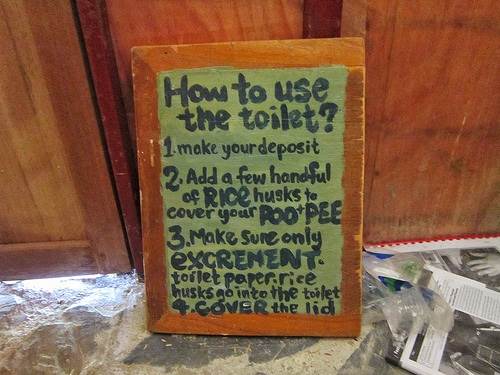 How to use
the toilet?
1. make your deposit
2. Add a few handful
of RICE husks to
cover your POO+PEE
3. Make sure only
EXCREMENT.
toilet paper. rice
husks go into the toilet
4. COVER the lid